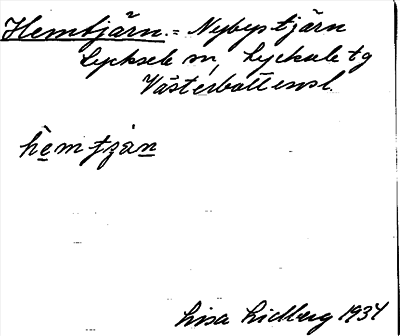 Hemtjärn. = Nybystjärn
Lycksele sn, Lycksele tg
Västerbottensl.
hèmtʒàn
Lisa Lidberg 1934